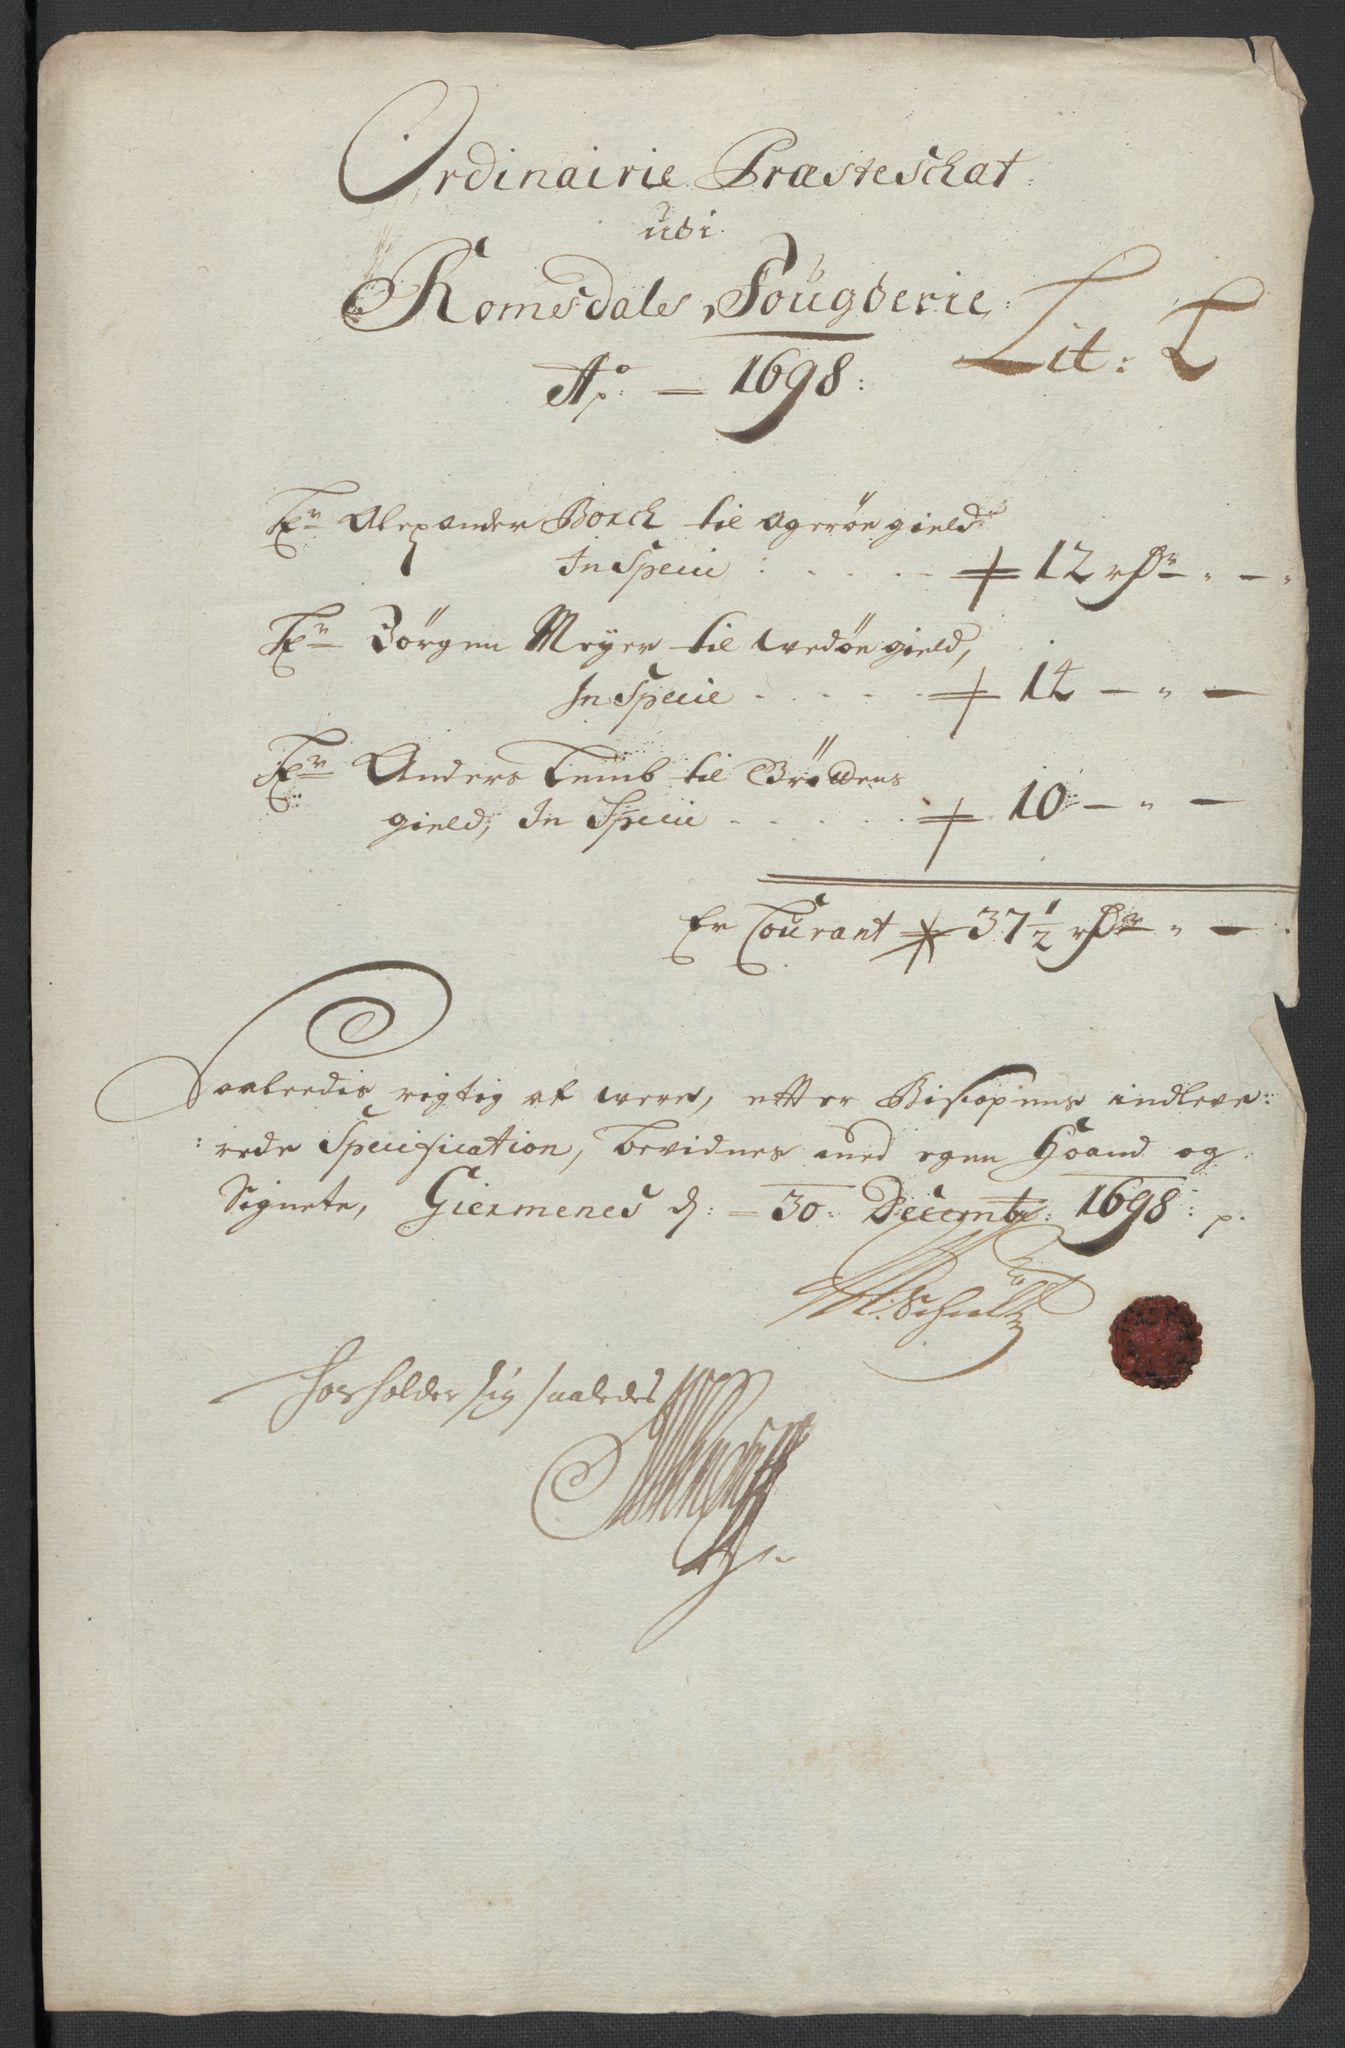 Ordinairie Præsteschat
udi
Romsdals Fougderie
Lit: T
Ao. = 1698:
Hr Alexander Borch til Agerøe gield
In Specie 12 rdr
Hr Børgen Meyer til Wedøe gield,
In Specie 14 — " —
Hr Anders Temb til Grødens
gield, In Specie 10 — " —
Er Courant 37 1/2 rdr " —
Saaledis rigtig at were, efter Biscopens indleve:
:rede Specification, bevidnes med egen Haand og
Signete, Giermenes d: 30: Decembr: 1698: p.
Schultz
forholder sig saaledes